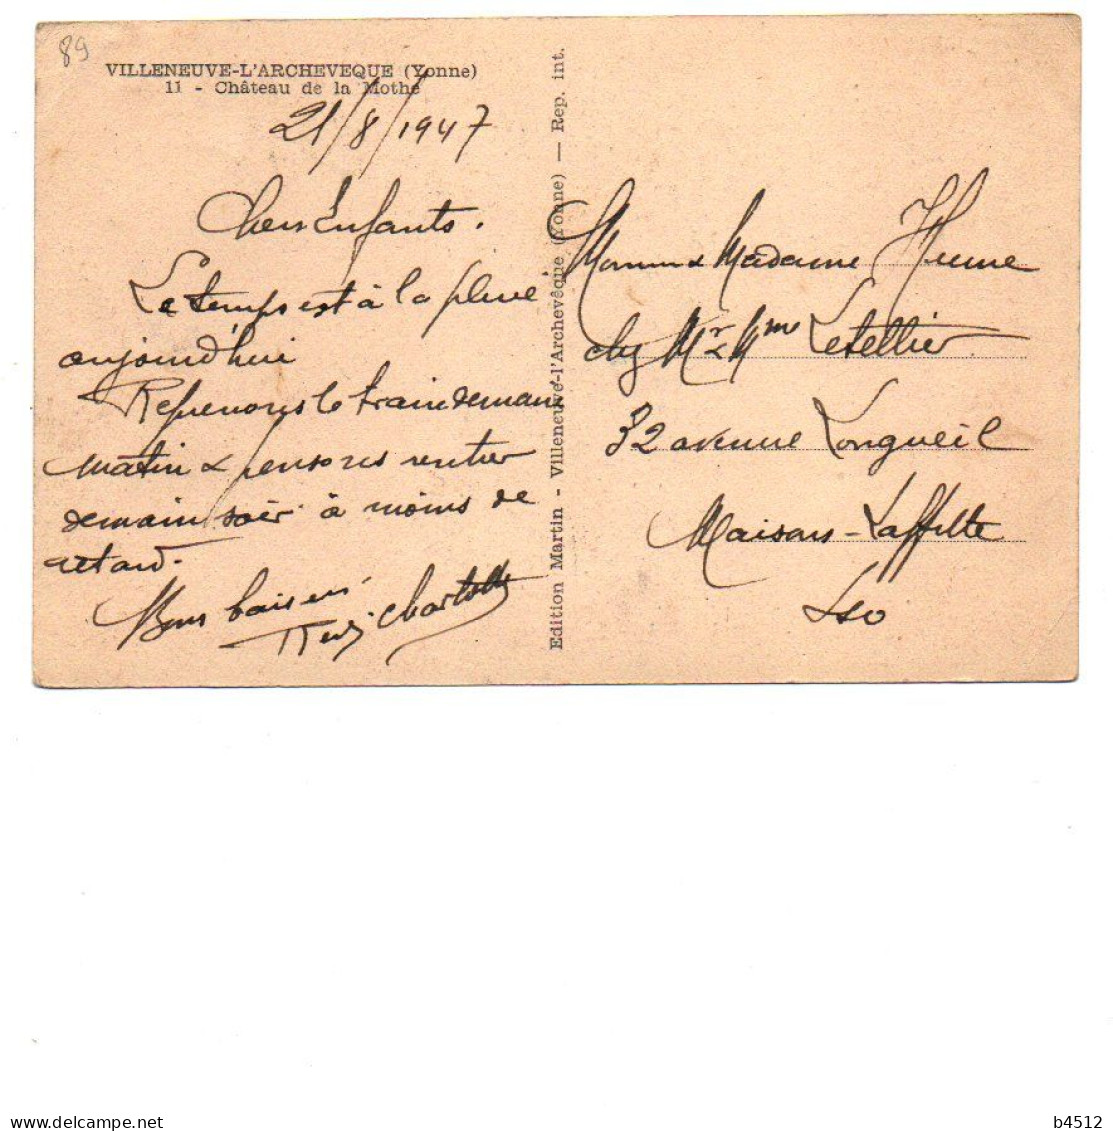 89
VILLENEUVE-L'ARCHEVEQUE (Yonne)
11 - Château de la Mothe
21/8/1947
Chers Enfants.
Le temps est à la pluie
aujourd'hui
Reprenons le train demain
matin & pensons rentrer
demain soir à moins de
retard.
Bons baisers
Charlotte
Edition Martin - Villeneuve-l'Archevêque (Yonne) — Rep. int.
Monsieur & Madame
chez Mr & Mme Letellier
32 avenue Longueil
Maisons-Laffitte
S&O
www.delcampe.net
b4512